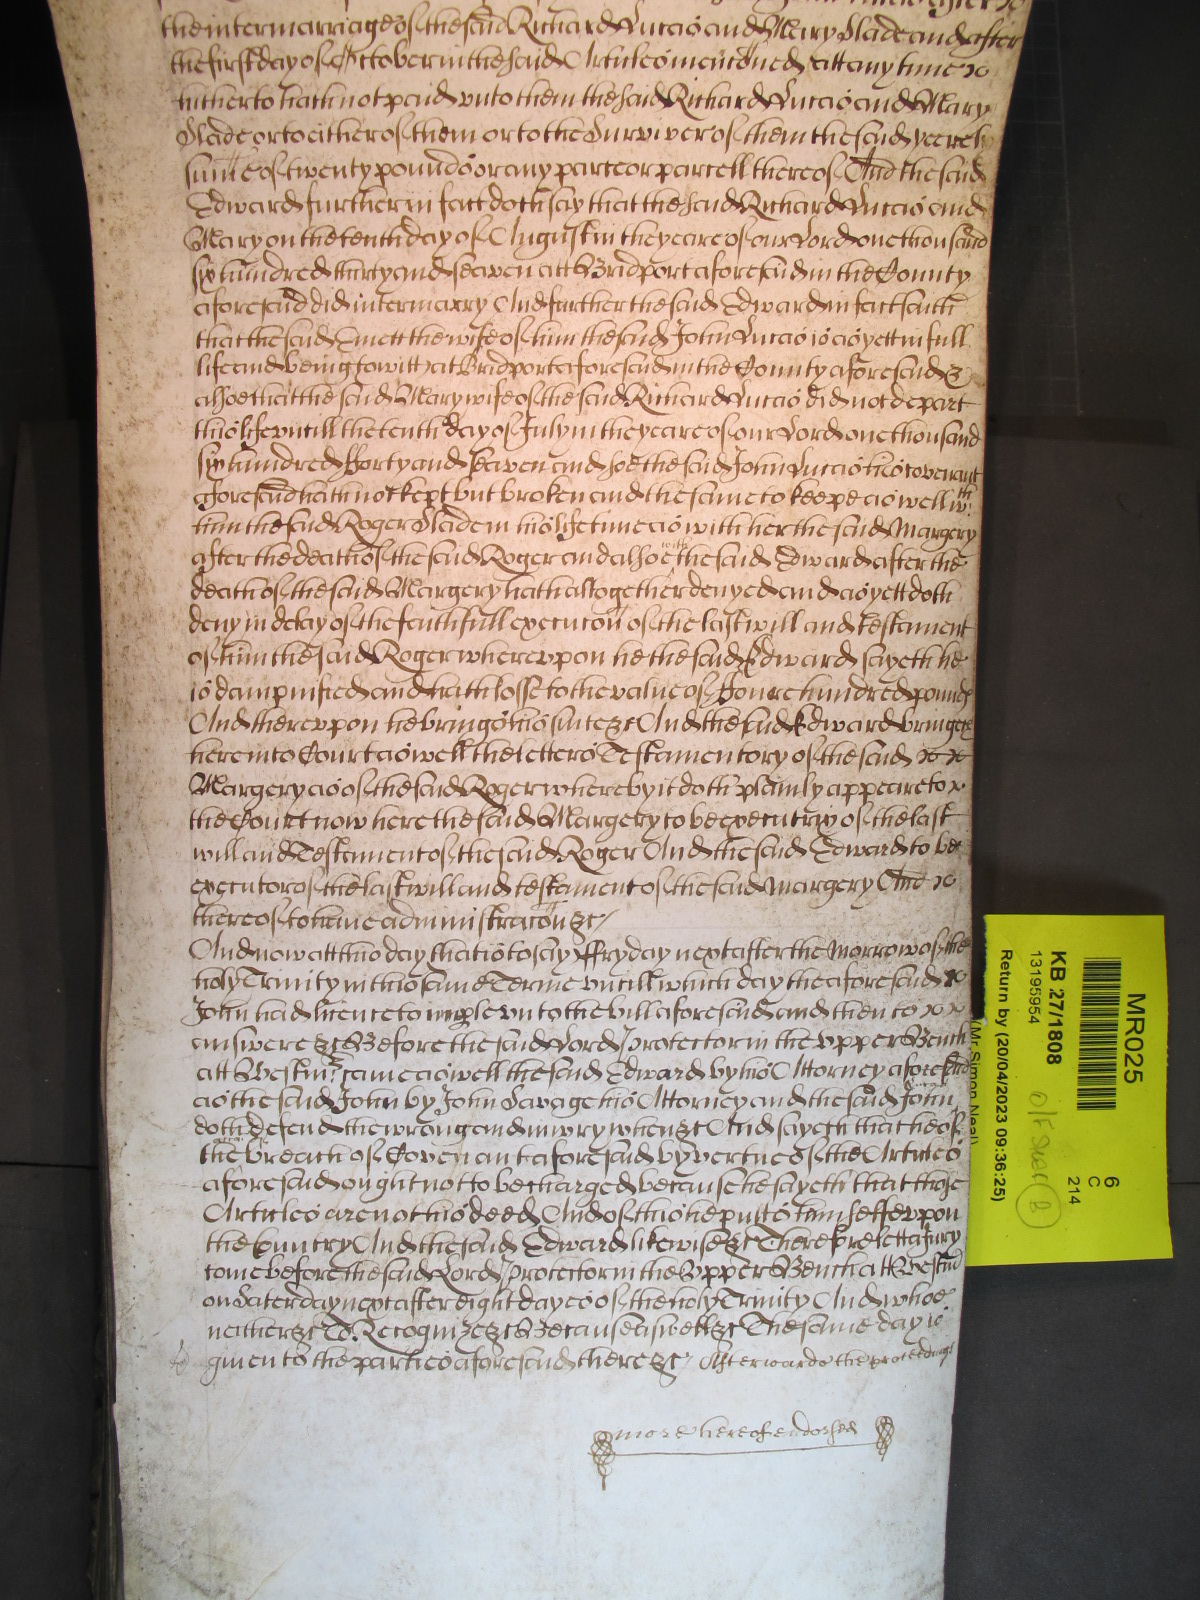 the intermarriage of the said Richard Luccis and Mary Slade and after
the first day of October in the said Articles menconed att any time
hitherto hath not paid unto them the said Richard Luccis and Mary
Slade or to either of them or to the Surviver of them the said yeerely
sume of twenty pounds or any parte or parcell thereof And the said
Edward further in fact doth say that the said Richard Luccis and
Mary on the tenth day of August in the yeare of our Lord one thousand
six hundred thirty and seaven att Bridport aforesaid in the County
aforesaid did intermarry And further the said Edward in fact saith
that the said Emett the wife of him the said John Luccis is as yett in full
life and being to witt at Bridport aforesaid in the County aforesaid &
alsoe that the said Mary wife of the said Richard Luccis did not depart
this life untill the tenth day of July in the yeare of our Lord one thousand
six hundred fforty and seaven and soe the said John Luccis his covenant
aforesaid hath not kept but broken and the same to keepe as well wth
him the said Roger Slade in his life time as with her the said Margery
after the death of the said Roger and alsoe with the said Edward after the
death of the said Margery hath altogether denyed and as yett doth
deny in delay of the faithfull execucon of the last will and testament
of him the said Roger whereupon he the said Edward sayeth he
is dampnified and hath losse to the value of ffoure hundred pounds
And thereupon he brings his suite &c And the said Edward bringeth
here into Court as well the letters Testamentory of the said
Margery as of the said Roger whereby it doth plainly appeare to
the Court now here the said Margery to be executrix of the last
will and Testament of the said Roger And the said Edward to be
executor of the last will and testament of the said Margery And
thereof to have administracon &c
And now att this day that is to say ffryday next after the morrow of the
holy Trinity in this same Terme untill which day the aforesaid
John had licence to imple unto the bill aforesaid and then to
answere &c Before the said Lord Protector in the upper Bench
att Westmr came as well the said Edward by his Attorney aforesaid
as the said John by John Savage his Attorney and the said John
doth defend the wrong and iniury when &c And sayeth that he of
the breach of Covenant aforesaid by vertue of the Articles
aforesaid ought not to be charged because he sayeth that those
Articles are not his deed And of this he putts himselfe upon
the Cuntry And the said Edward likewise &c Therefore lett a jury
come before the said Lord Protector in the Upper Bench att Westmr
on Saterday next after eight dayes of the holy Trinity And whoe
neither &c To Recognize &c Because aswell &c The same day is
given to the parties aforesaid there &c Afterwards the proceedings
more hereof endorsed
MR025
6
C
214
KB 27/1808
13195954
Return by (20/04/2023 09:36:25)
(Mr Simon Neal)